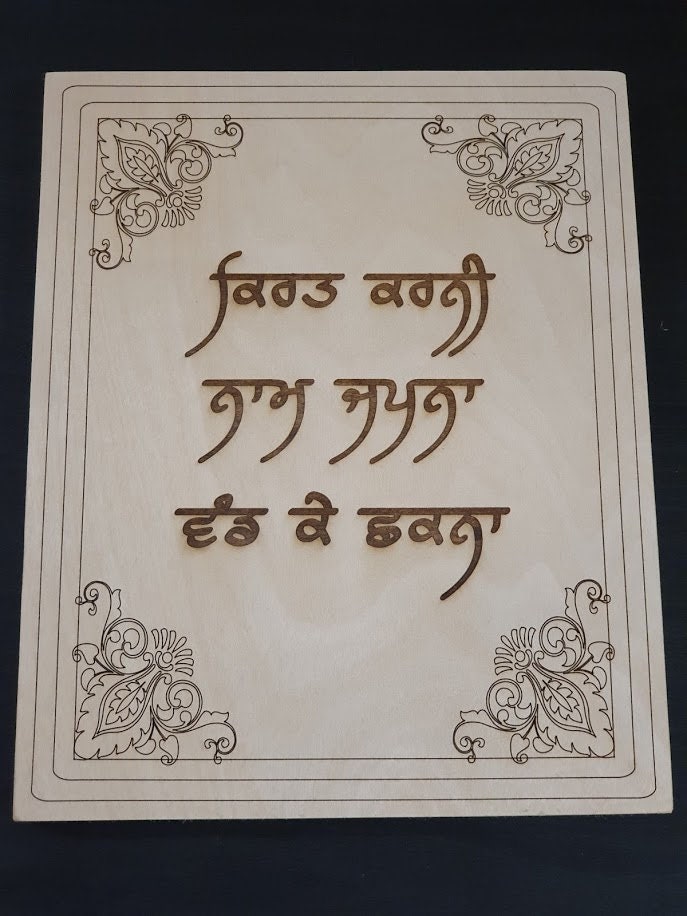 ਕਿਰਤ ਕਰਨੀ
ਨਾਮ ਜਪਨਾ
ਵੰਡ ਕੇ ਛਕਨਾ